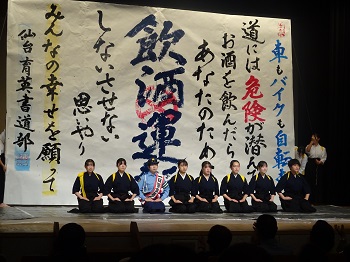 車もバイクも自転
道には危険が潜ん
お酒を飲んだら
あなたのため
飲酒運
しないさせない
思いやり
みんなの幸せを願って
仙台育英書道部